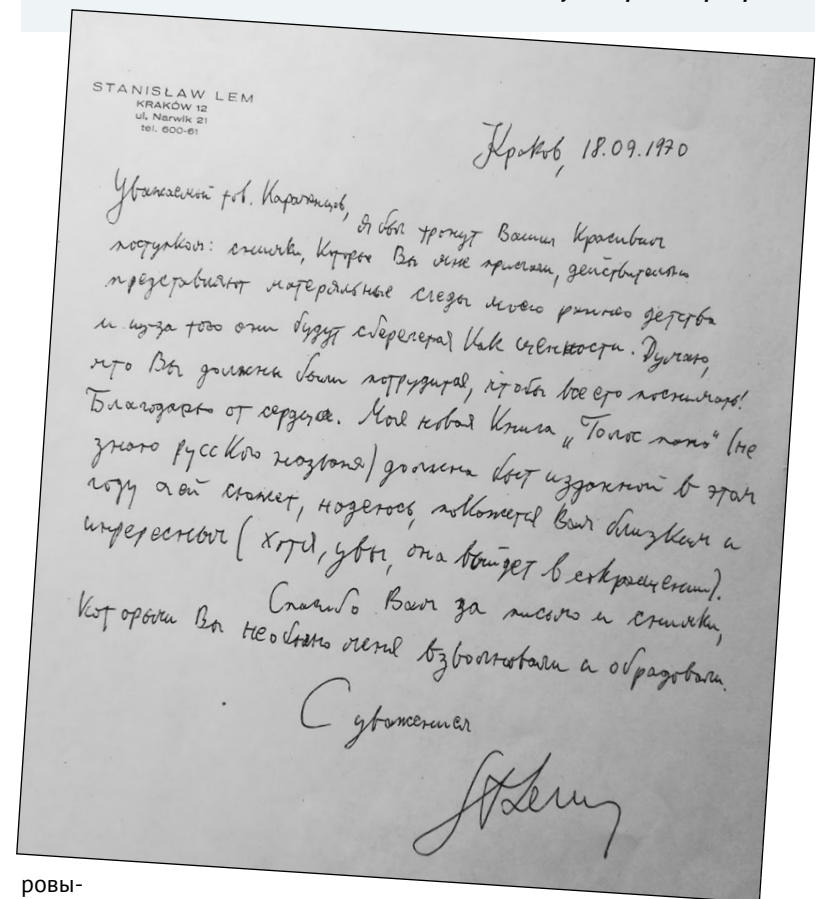 STANISŁAW LEM
KRAKÓW 12
ul. Narwik 21
tel. 600-61
Краков, 18.09.1970
Уважаемый тов.
я был тронут Вашим Красивым
поступком: снимки, Которые Вы мне прислали, действительно
представляют матеряльные следы моего раннего детства
и из-за того они будут Как ценности. Думаю,
что Вы должны были потрудится, чтобы все это поснимать!
Благодарю от сердца. Моя новая Книга „Голос " (не
знаю русского названя) должна быт изданной в этом
году и ей сюжет, надеюсь, покажется Вам близким и
интересным (хотя, увы, она выйдет в сокращении).
Спасибо Вам за письмо и снимки,
Которыми Вы меня взволновали и обрадовали.
С уважением
StLem
ровы-